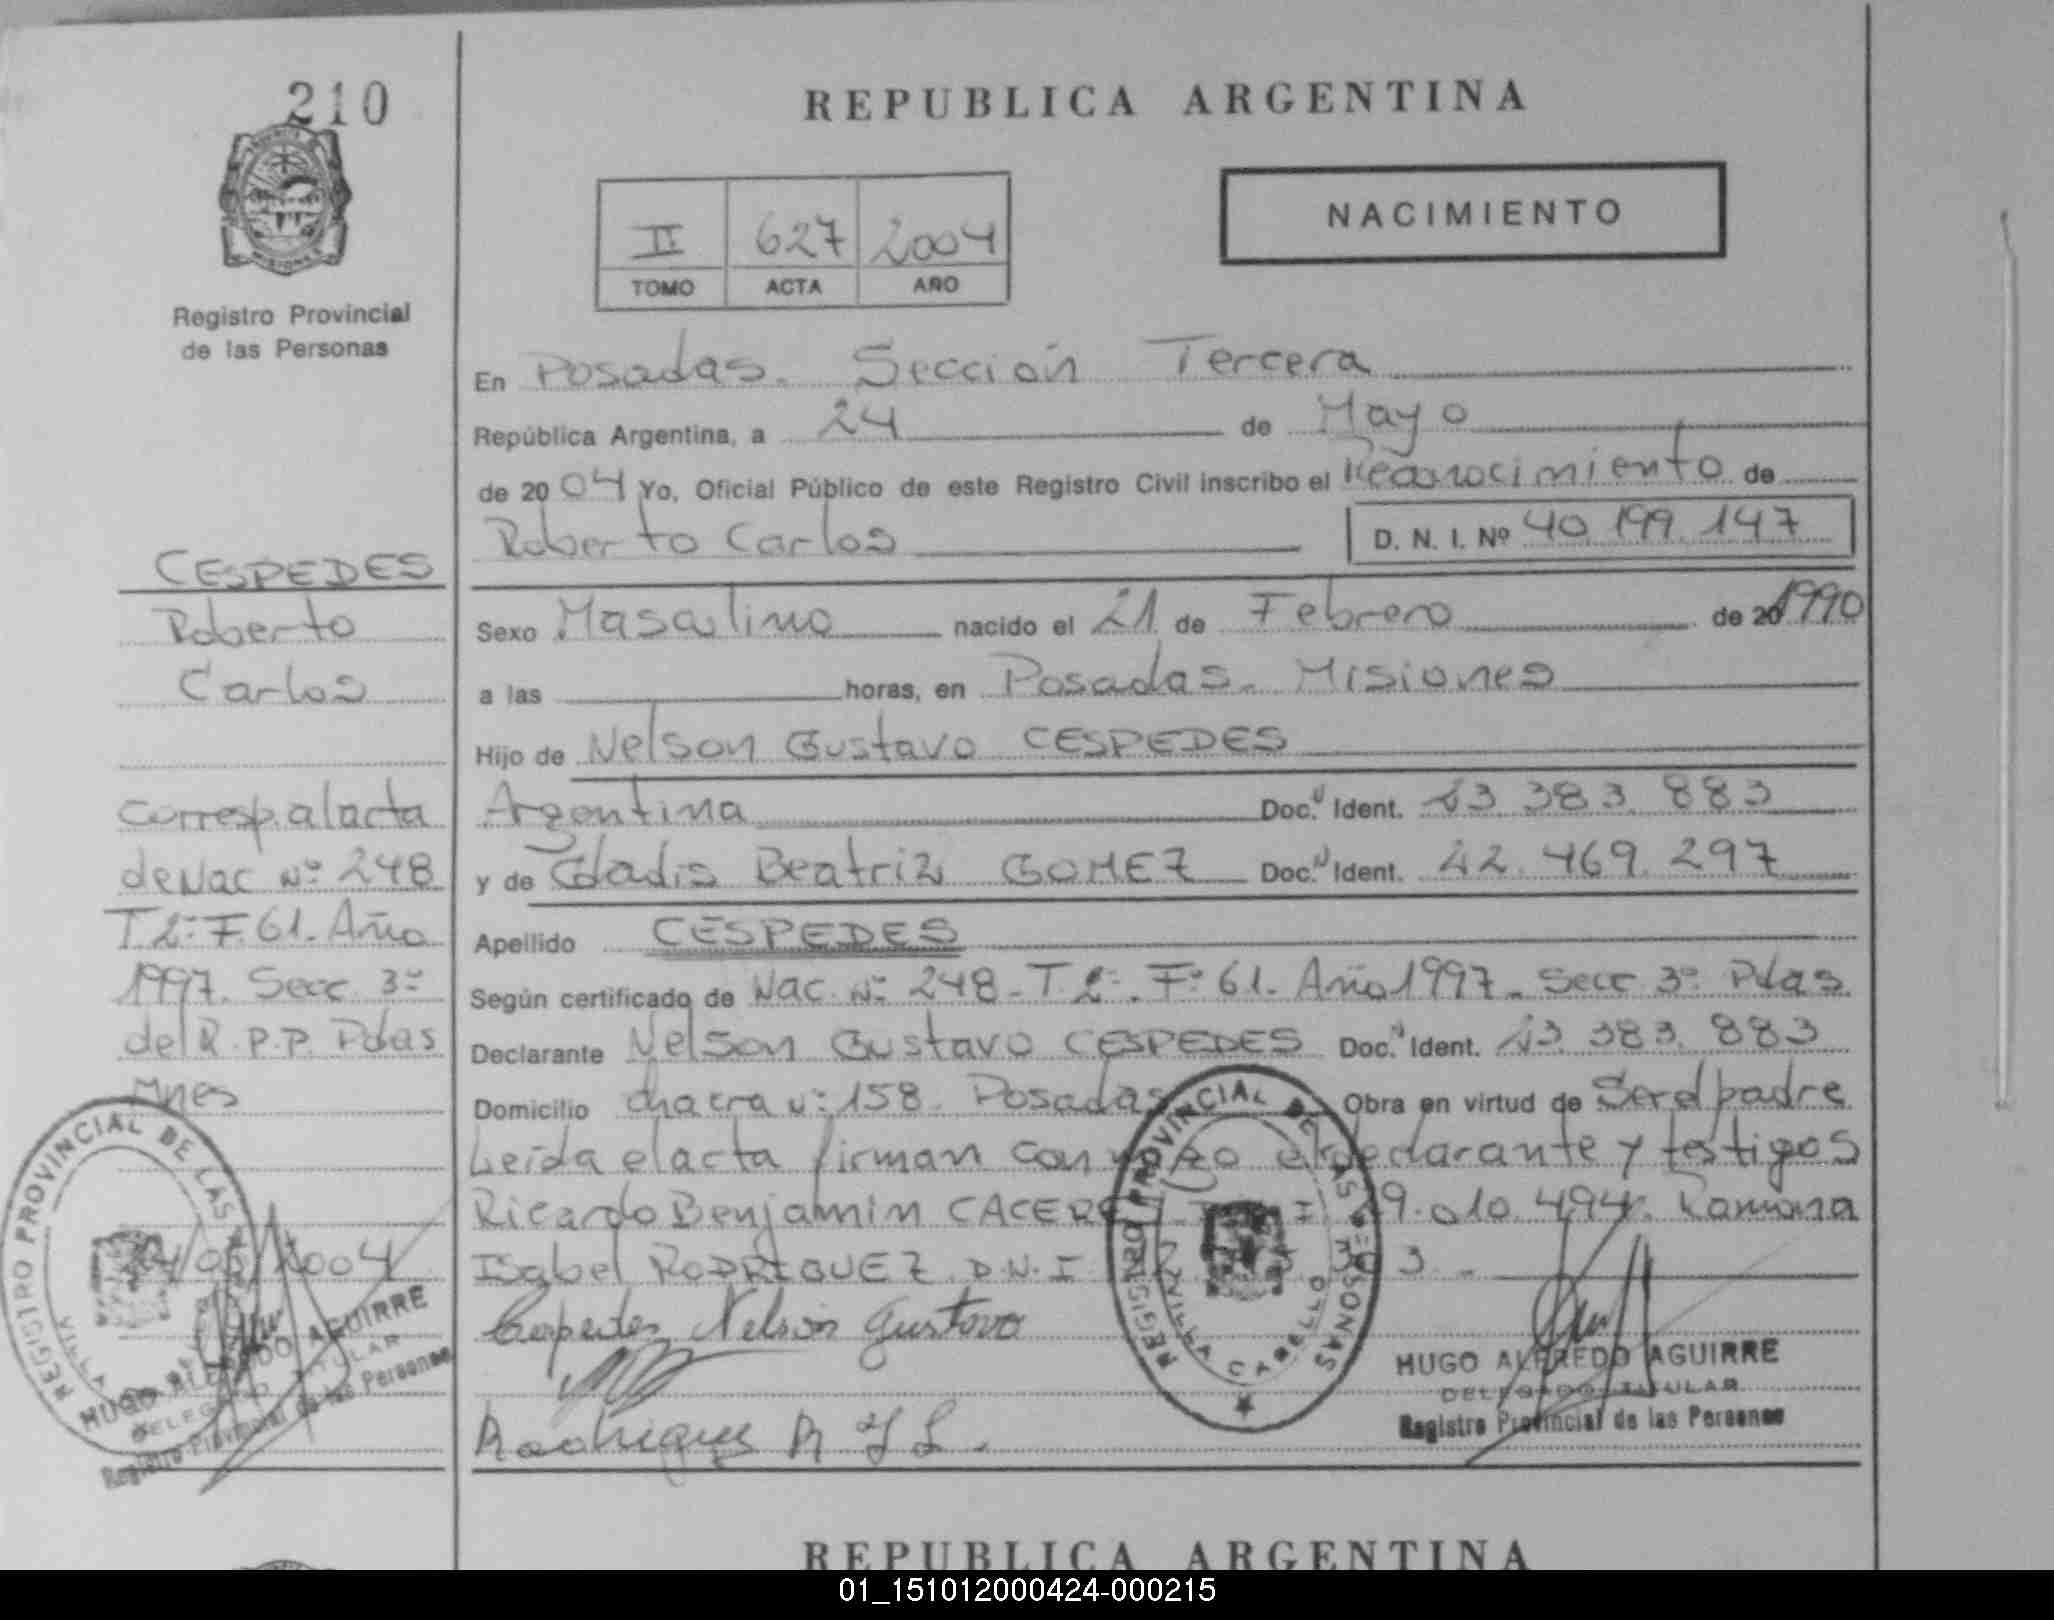 210
REPUBLICA ARGENTINA
NACIMIENTO
II 627 2004
TOMO ACTA AÑO
Registro Provincial
de las Personas
En Posadas. Sección Tercera
República Argentina, a 24 de Mayo
de 2004 Yo, Oficial Público de este Registro Civil inscribo el Reconocimiento de
Roberto Carlos D. N. I. Nº 40.199.147
CESPEDES
Roberto
Carlos
Sexo Masculino nacido el 21 de Febrero de 20 1990
a las horas, en Posadas. Misiones
Hijo de Nelson Gustavo CESPEDES
Argentina Doc. Ident. 13.383.883
y de Gladis Beatriz GOMEZ Doc. Ident. 12.469.297
Apellido CESPEDES
Según certificado de Nac. Nº 248 - T 2º. Fº 61. Año 1997. Secc 3º Pdas.
Declarante Nelson Gustavo CESPEDES Doc. Ident. 13.383.883
Domicilio chacra Nº 158. Posadas Obra en virtud de Ser el padre
Leída el acta firman conmigo el declarante y testigos
Ricardo Benjamin CACERES 29.010.494. Ramona
Isabel RODRIGUEZ D.N.I
Corresp. al acta
de Nac Nº 248
T 2º F 61. Año
1997. Secc 3º
del R.P.P. Pdas
Mnes
24/05/2004
Cespedes Nelson Gustavo
Rodriguez R
REGISTRO PROVINCIAL DE LAS PERSONAS
VILLA CABELLO
HUGO ALFREDO AGUIRRE
DELEGADO TITULAR
Registro Provincial de las Personas
REGISTRO PROVINCIAL DE LAS
HUGO ALFREDO AGUIRRE
DELEGADO TITULAR
Registro Provincial de las Personas
REPUBLICA ARGENTINA
01_151012000424-000215